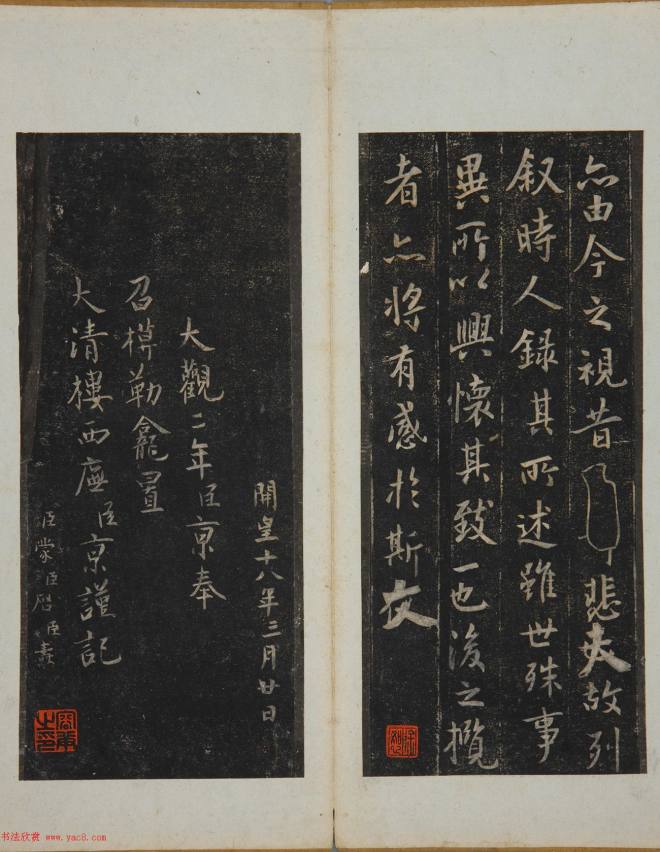 亦由今之視昔悲夫故列
叙時人錄其所述雖世殊事
異所以興懷其致一也後之攬
者亦將有感於斯文
開皇十八年三月廿日
大觀二年臣京奉
召模勒龕置
大清樓西廡臣京謹記
书法欣赏 www.yac8.com